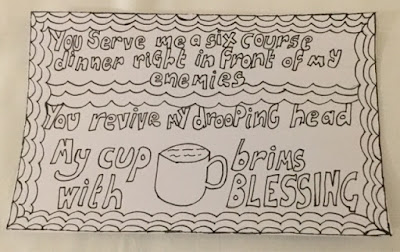 You Serve me a six course
dinner right in front of my
enemies
You revive my drooping head
My cup brims
with BLESSING